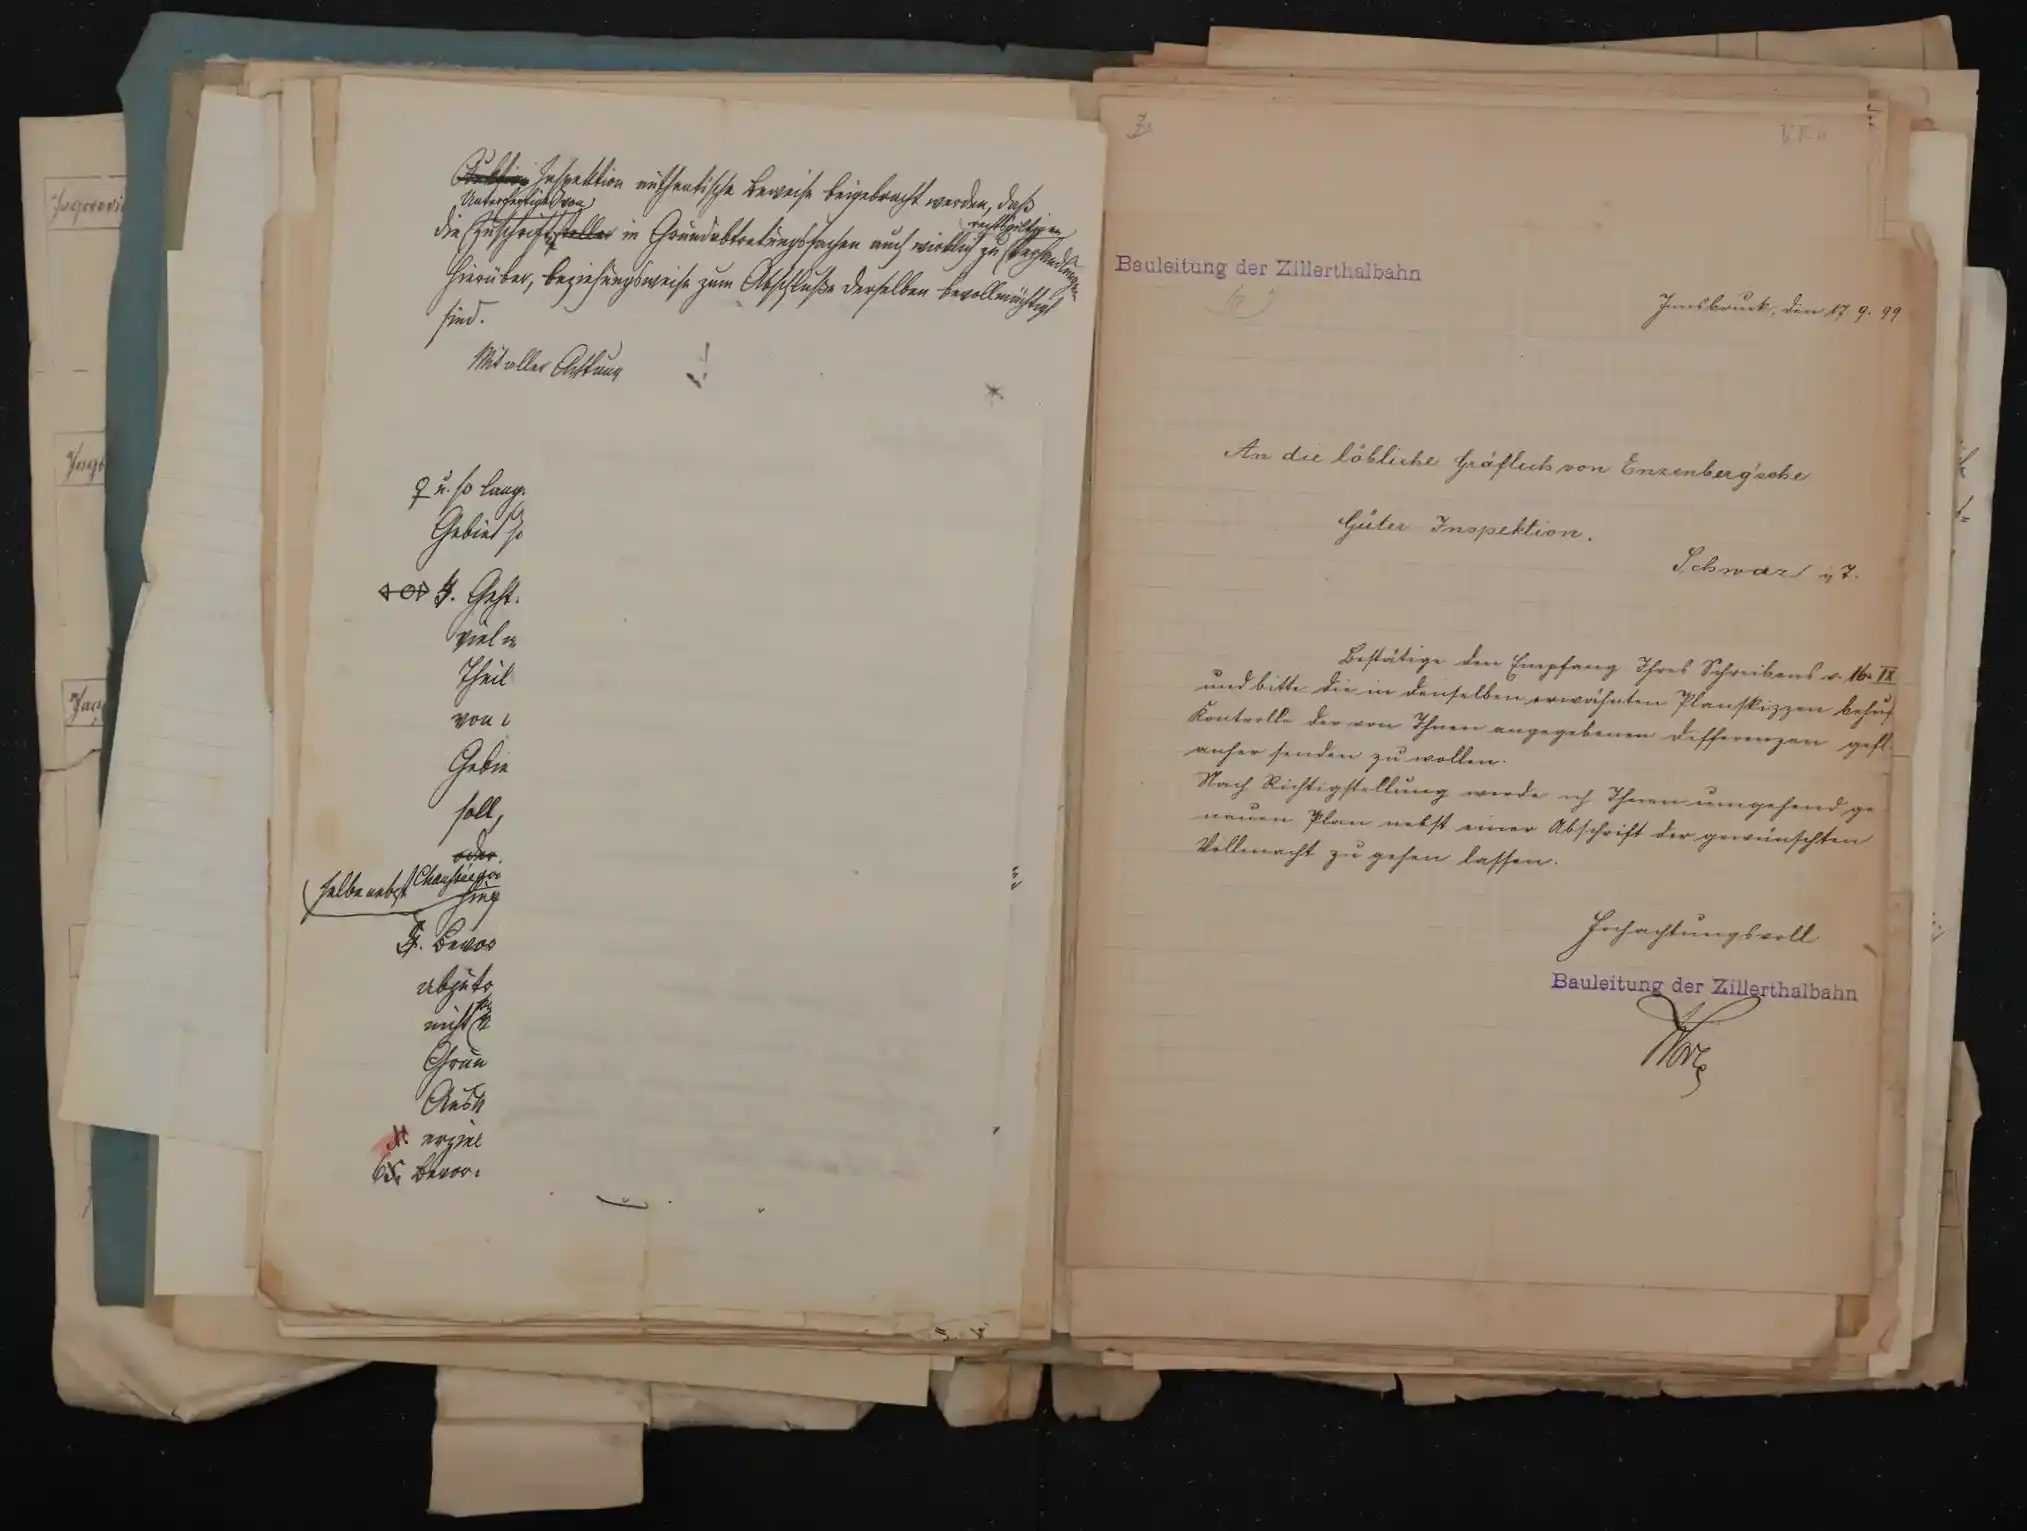 Inspektion authentische Beweise beigebracht werden, daß
Unterfertigte von
rechtsgiltigen
die Zuschriftsteller in Grundabtretungssachen auch wirklich zu Verhandlungen
hierüber, beziehungsweise zum Abschluße derselben bevollmächtigt
sind.
Mit aller Achtung
u. so lang
Gebiet so
4. Geht.
viel
Theil
von
Gebie
soll,
oder
selbe nebst
5. Bevor
abzutr
nicht
Grun
Ausk
erziel
6. Bevor
Bauleitung der Zillerthalbahn
Innsbruck, den 17 9. 99
An die löbliche Gräflich von Enzenberg'sche
Güter Inspektion.
Schwaz i/T.
Bestätige den Empfang Ihres Schreibens v. 16. IX
und bitte die in denselben erwähnten Planskizzen behufs
Kontrolle der von Ihnen angegebenen Differenzen gefl.
anher senden zu wollen.
Nach Richtigstellung werde ich Ihnen umgehend ge
nauen Plan nebst einer Abschrift der gewünschten
Vollmacht zu gehen lassen.
Hochachtungsvoll
Bauleitung der Zillerthalbahn